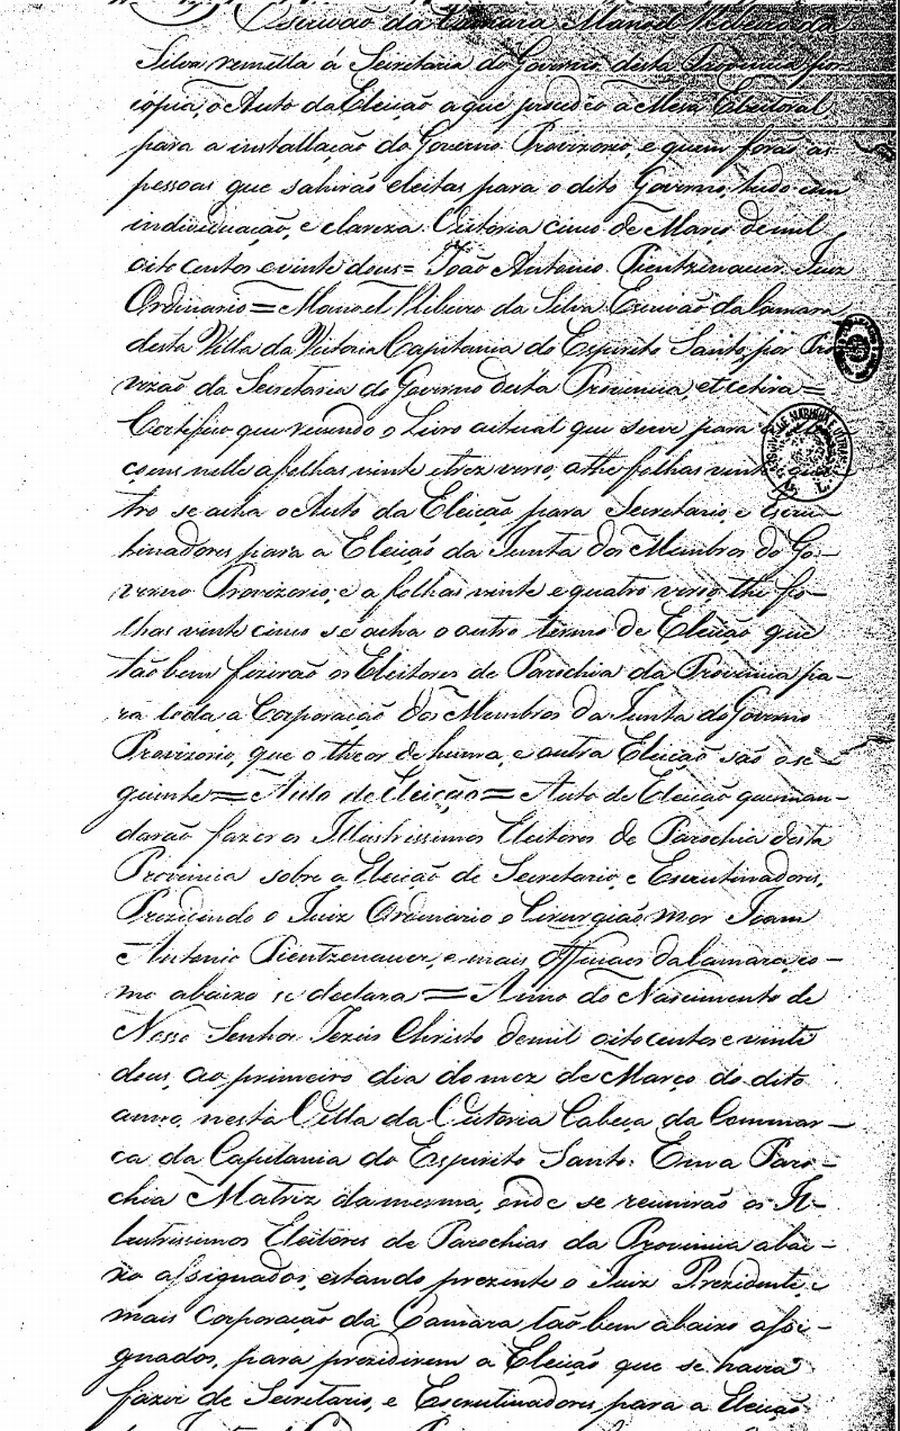 Escrivão da Camara Manoel Ribeiro da
Silva remetta á Secretaria do Governo desta Provincia por
copia, o Auto da Eleição a que procedeo a Meza Eleitoral
para a installação do Governo Provizorio, e quem forão as
pessoas que sahirão eleitas para o dito Governo, tudo com
individuação, e clareza. Victoria cinco de Março de mil
oito centos e vinte dous = João Antonio Pientzenauer. Juiz
Ordinario = Manoel Ribeiro da Silva Escrivão da Camara
desta Villa da Victoria Capitania do Espirito Santo, por Pro
vizão da Secretaria do Governo desta Provincia, et cetera =
Certifico que revendo o Livro actual que serve para
nelle a folhas vinte e trez verso, athe folhas vinte e qua
tro se acha o Auto da Eleição para Secretario, e Escru-
tinadores para a Eleição da Junta dos Membros do Go-
verno Provizorio; e a folhas vinte e quatro verso, the fo-
lhas vinte cinco se acha o outro termo de Eleição que
tão bem fizerão os Eleitores de Parochia da Provincia pa-
ra toda a Corporação dos Membros da Junta do Governo
Provizorio, que o theor de huma, e outra Eleição são o se
guinte = Auto de Eleição = Auto de Eleição que man-
darão fazer os Illustrissimos Eleitores de Parochia desta
Provincia sobre a Eleição de Secretario, e Escrutinadores,
Prezidindo o Juiz Ordinario o Cirurgião mor Joam
Antonio Pientzenauer, e mais Officiaes da Camara, co-
mo abaixo se declara = Anno do Nascimento de
Nosso Senhor Jezus Christo de mil oito centos e vinte
dous, ao primeiro dia do mez de Março do dito
anno, nesta Villa da Victoria Cabeça da Commar-
ca da Capitania do Espirito Santo: Em a Paro-
chia Matriz da mesma, onde se reunirão os Il-
lustrissimos Eleitores de Parochias da Provincia abai-
xo assignados, estando prezente o Juiz Prezidente, e
mais Corporação da Camara tão bem abaixo assi-
gnados, para prezidirem a Eleição que se havia
fazer de Secretario, e Escrutinadores para a Eleição